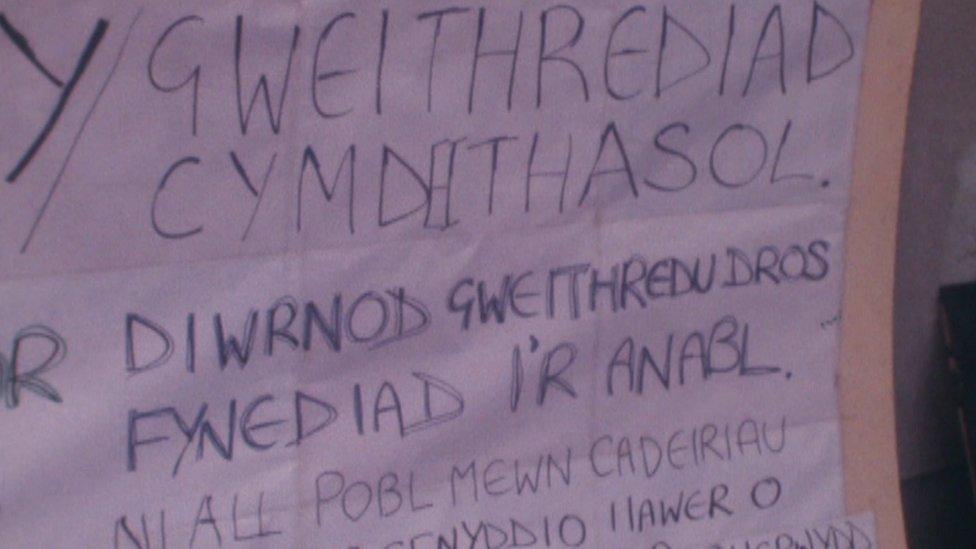 Y/GWEITHREDIAD
CYMDEITHASOL.
DIWRNOD GWEITHREDU DROS
FYNEDIAD I'R ANABL.
NI ALL POBL MEWN CADEIRIAU
LLAWER O